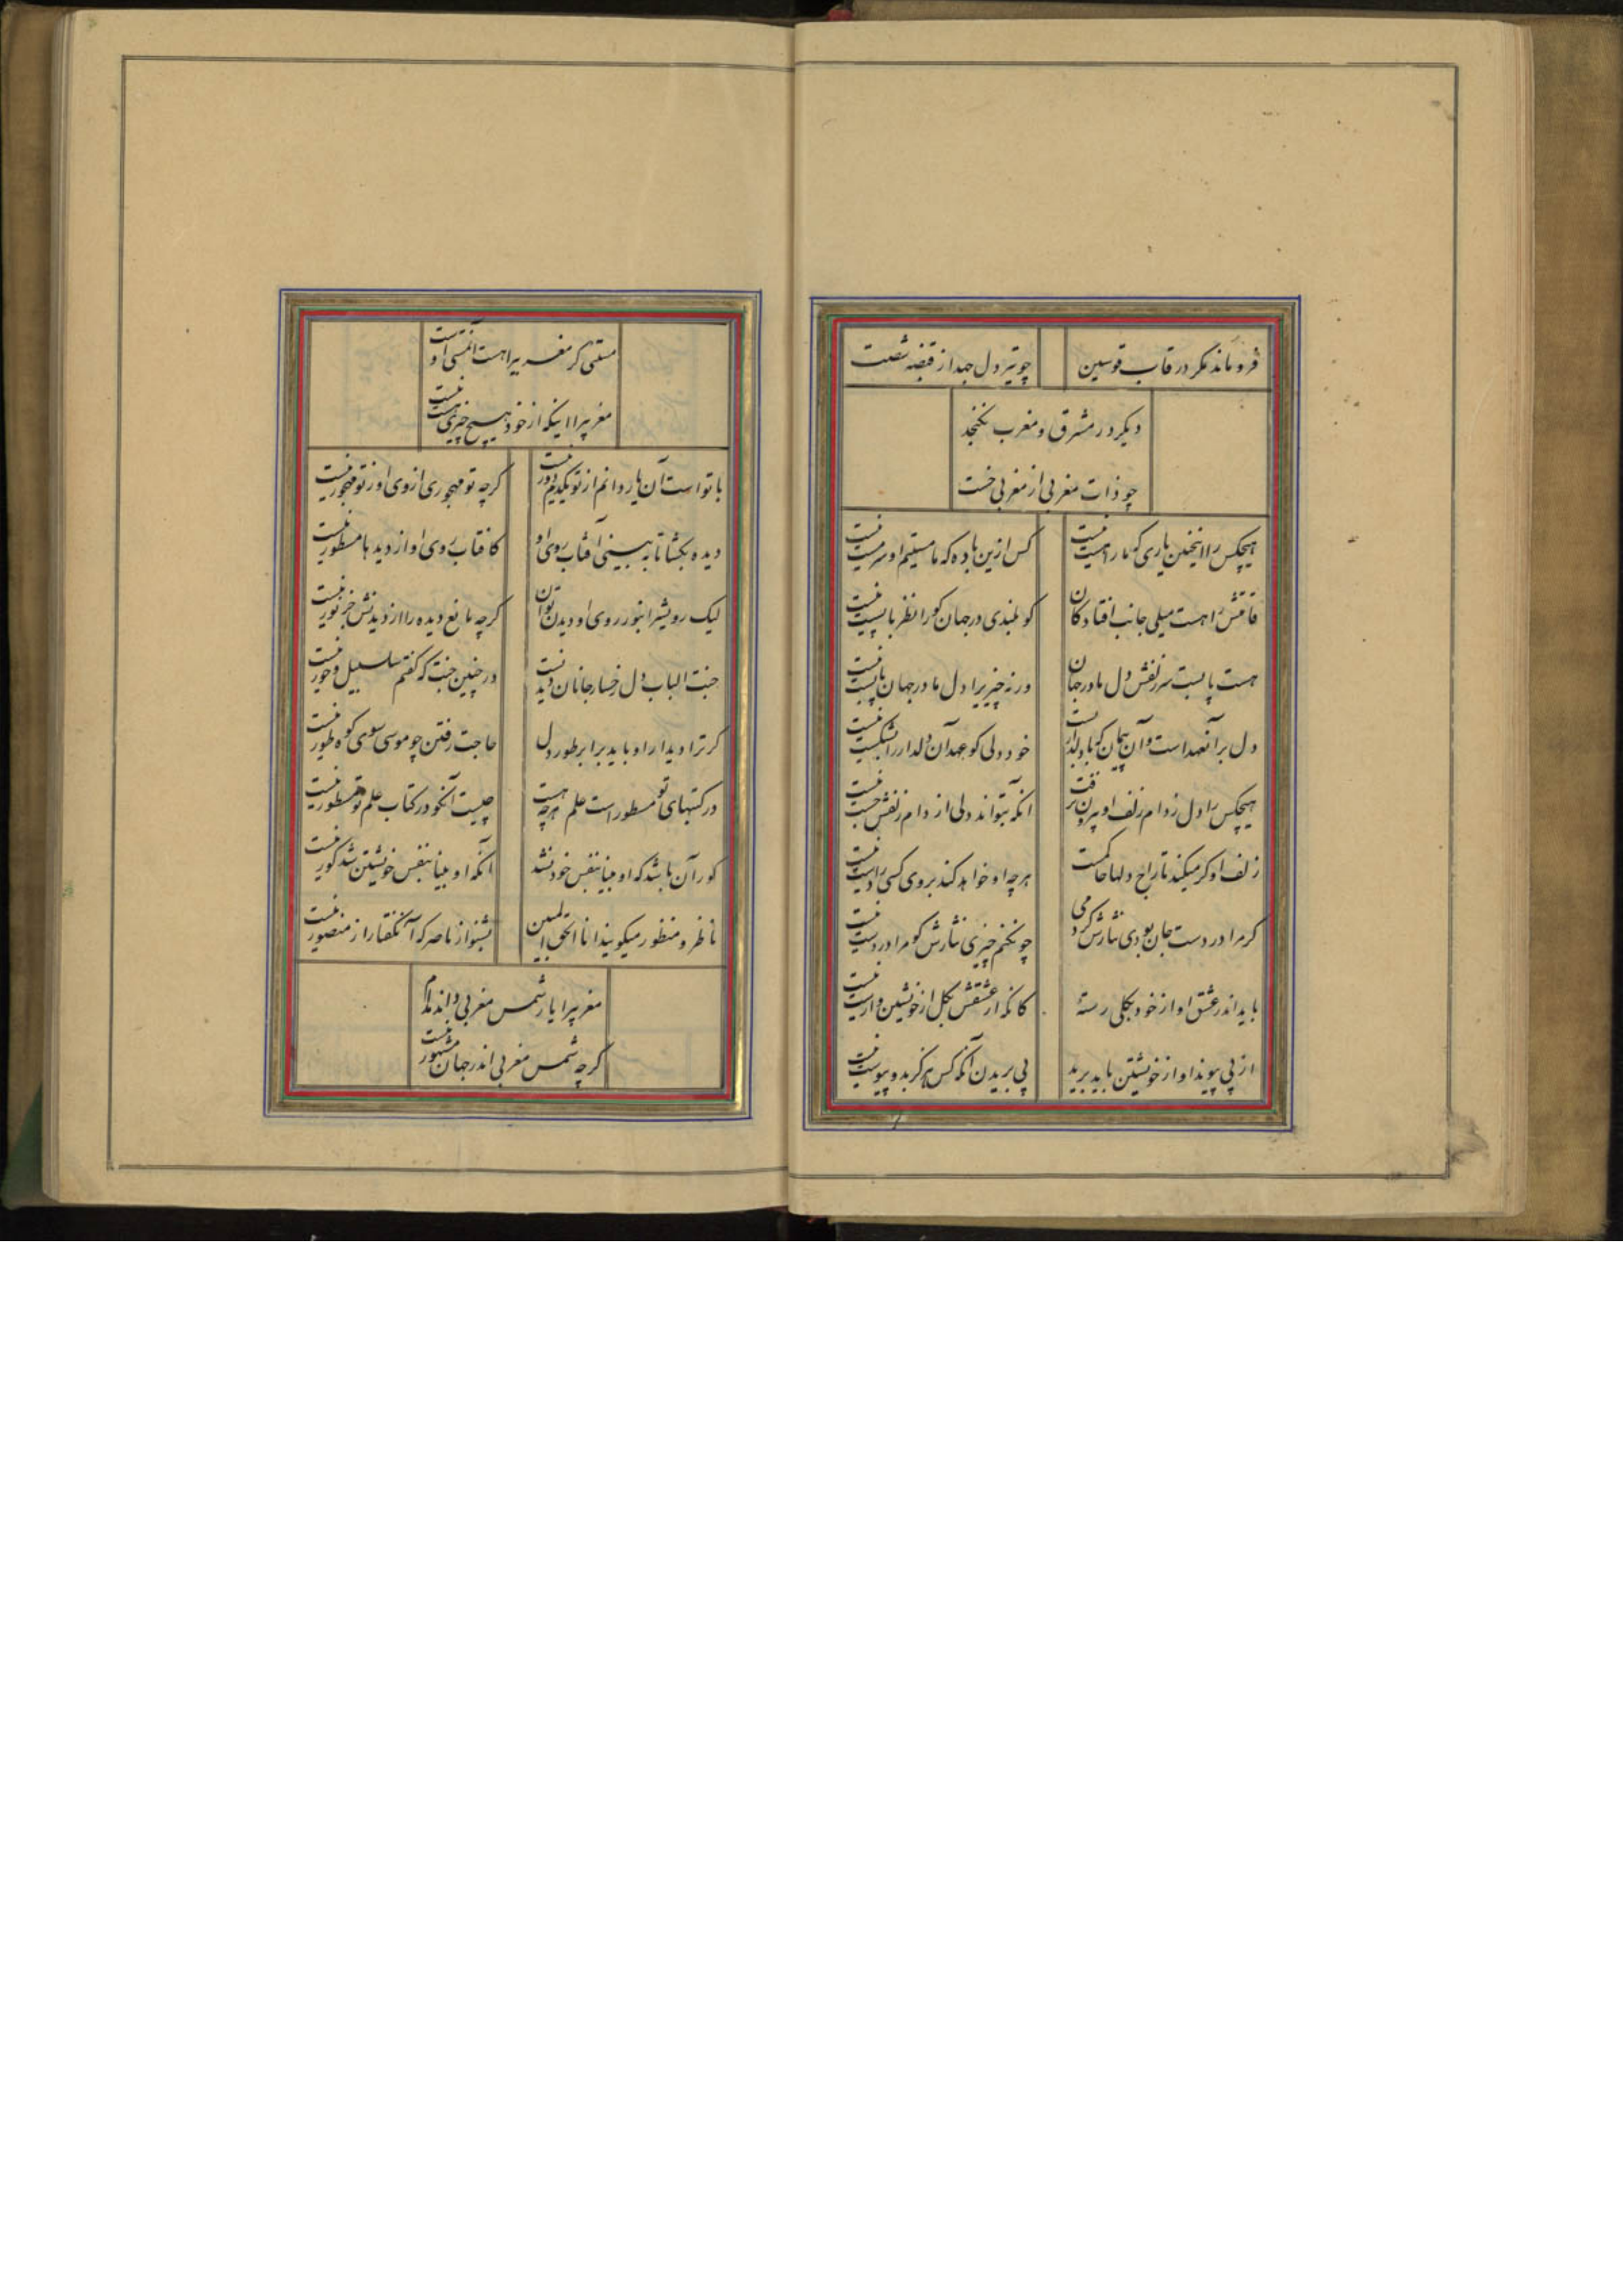 فرو ماند مکر در قاب قوسین
چو تیر دل جهد از قبضه شصت
دیکر در مشرق و مغرب نکنجد
چو ذات مغربی از مغربی خست
هیچکس را اینچنین یاری که ما را هست نیست
کس ازین باده که ما مستیم او سرمست نیست
قامتش را هست میلی جانب افتادکان
کو بلندی در جهان کورا نظر با پست نیست
هست پا بست سر زلفش دل ما در جهان
ورنه چیزیرا دل ما در جهان پابست نیست
دل بر آنعهد است و آن پیمان که با دلدار بست
خود دلی کو عهد آن دلدار را اشکست نیست
هیچکس را دل ز دام زلف او بیرون نرفت
آنکه بتواند دلی از دام زلفش جست نیست
زلف او کر میکند تاراج دلها حاکمست
هرچه او خواهد کند بروی کسی را دست نیست
کر مرا در دست جان بودی نثارش کردمی
چونکنم چیزی نثارش کو مرا در دست نیست
باید اندر عشق او از خود بکلی رستهٔ
کانکه از عشقش بکل از خویشتن وارست نیست
از پی پیوند او از خویشتن باید برید
پی بریدن آنکه کس هرکز بدو پیوست نیست
مستئی کر مغربیرا هست آنمستی اوست
مغربیرا اینکه از خود هیچ چیزی هست نیست
با تو است آن یار و انم از تو یکدم دور نیست
کرچه تو مهجوری از وی او ز تو مهجور نیست
دیده بکشا تا ببینی آفتاب روی او
کافتاب روی او از دیدها مستور نیست
لیک رویشرا بنور روی او دیدن توان
کرچه مانع دیده را از دیدنش جز نور نیست
جنت الباب دل رخسار جانان دیدنست
در چنین جنت که کفتم سلسبیل و حور نیست
کر ترا دیدار او باید برا بر طور دل
حاجت رفتن چو موسی سوی کوه طور نیست
در کتبهای تو مسطور است علم هرچه هست
چیست آنکو در کتاب علم تو مسطور نیست
کور آن باشد که او بینا بنفس خود نشد
آنکه او بینا بنفس خویشتن شد کور نیست
ناظر و منظور میکوید انا الحق المبین
بشنو از ناصر که آنکفتار از منصور نیست
مغربیرا یار شمس مغربی داند مدام
کرچه شمس مغربی اندر جهان مشهور نیست